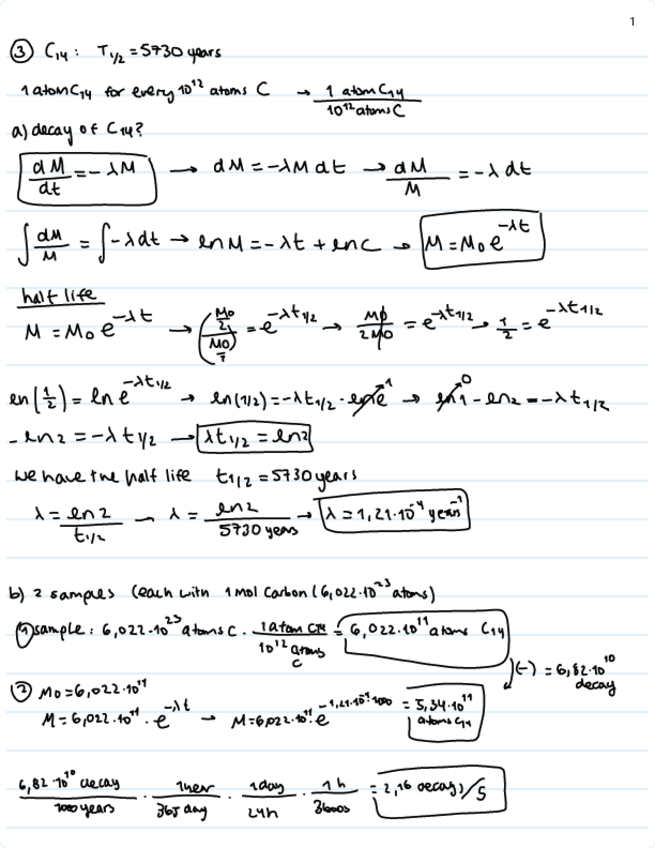 1
③ C₁₄ : T₁/₂ = 5730 years
1 atom C₁₄ for every 10¹² atoms C → 1 atom C₁₄ / 10¹² atoms C
a) decay of C₁₄?
dM/dt = -λM → dM = -λM dt → dM/M = -λ dt
∫ dM/M = ∫ -λ dt → ln M = -λt + ln C → M = M₀ e^(-λt)
half life
M = M₀ e^(-λt) → (M₀/2)/(M₀/1) = e^(-λt₁/₂) → M₀/2M₀ = e^(-λt₁/₂) → 1/2 = e^(-λt₁/₂)
ln(1/2) = ln e^(-λt₁/₂) → ln(1/2) = -λt₁/₂ · ln e ¹ → ln 1 ⁰ - ln 2 = -λt₁/₂
-ln 2 = -λt₁/₂ → λt₁/₂ = ln 2
We have the half life t₁/₂ = 5730 years
λ = ln 2 / t₁/₂ → λ = ln 2 / 5730 years → λ = 1,21·10⁻⁴ years⁻¹
b) 2 samples (each with 1 mol Carbon (6,022·10²³ atoms)
① sample : 6,022·10²³ atoms C · 1 atom C14 / 10¹² atoms C = 6,022·10¹¹ atoms C₁₄
](-) = 6,82·10¹⁰ decay
② M₀ = 6,022·10¹¹
M = 6,022·10¹¹ · e^(-λt) → M = 6,022·10¹¹ · e^(-1,21·10⁻⁴·1000) = 5,34·10¹¹ atoms C₁₄
6,82·10¹⁰ decay / 1000 years · 1 year / 365 day · 1 day / 24h · 1 h / 3600s = 2,16 decays/s